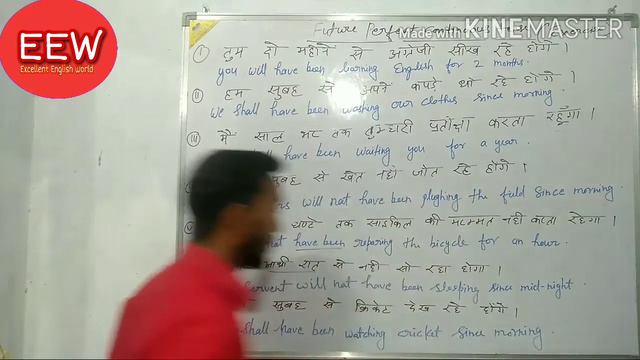 EEW
Excellent English World
Made with KINEMASTER
Future Perfect Continuous
I तुम दो महीने से अंग्रेजी सीख रहे होगे ।
you will have been learning English for 2 months.
II हम सुबह से अपने कपड़े धो रहे होंगे ।
We shall have been washing our clothes since morning.
III मैं साल भर तक तुम्हारी प्रतीक्षा करता रहूँगा ।
have been waiting you for a year.
सुबह से खेत नहीं जोत रहे होंगे ।
will not have been ploghing the fuld since morning.
घण्टे तक साइकिल की मरम्मत नहीं करता रहेगा ।
have been reparing the bicycle for an hour.
रात से नहीं सो रहा होगा ।
will not have been sleeping since mid-night.
सुबह से क्रिकेट देख रहे होंगे ।
shall have been watching cricket since morning.